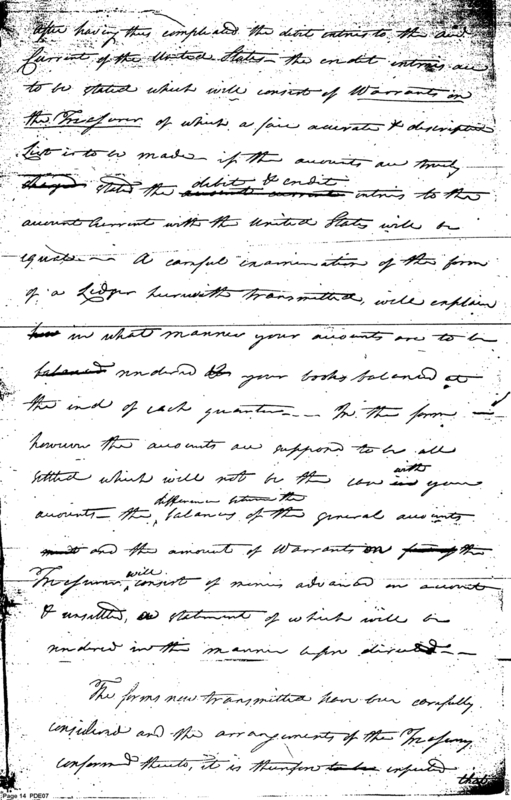 after having thus compleated the debit entries to the acct
Current of the United States – the credit entries are
to be stated which will consist of Warrants on
the Treasurer of which a fair accurate & descriptive
List is to be made – if the accounts are truly
charged stated the debit & credit account current entries to the
account Current with the United States will be
equal – A careful examination of the form
of a Ledger herewith transmitted, will explain
how in what manner your accounts are to be
balanced rendered & your books balanced at
the end of each quarter – – In the form –
however the accounts are supposed to be all
settled which will not be the case in with your
accounts – the difference between the balances of the general accounts
and the amount of Warrants on the
Treasurer, will consist of monies advanced on account
& unsettled, a statement of which will be
rendered in the manner before directed – –
The forms now transmitted have been carefully
considered and the arrangements of the Treasury
conformed thereto, it is therefore to be expected
that
Page 14 PDE07